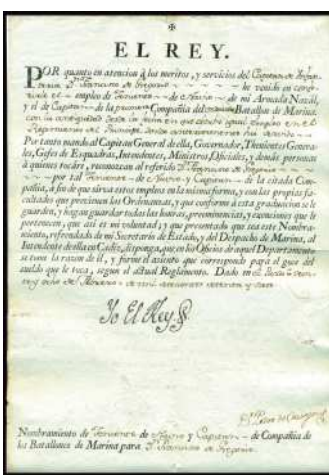 EL REY.
POR quanto en atencion à los meritos, y servicios del Capitan de
he venido en conferirle el empleo de Teniente de Navio de mi Armada Naval,
y el de Capitan de la Compañia del Batallon de Marina,
con la antiguedad desde la fecha en que obtubo igual Empleo en el
Regimiento del
Por tanto mando al Capitan General de ella, Governador, Thenientes Generales,
Gefes de Esquadras, Intendentes, Ministros, Oficiales, y demás personas
à quienes tocáre, reconozcan al referido Dn
por tal Teniente de Navio y Capitan de la citada Compañia,
à fin de que sirva estos empleos en la misma forma, y con las propias facultades
que previenen las Ordenanzas, y que conforme à esta graduacion se le
guarden, y hagan guardar todas las honras, preeminencias, y exenciones que le
pertenecen, que assi es mi voluntad; y que presentado que sea este Nombramiento,
refrendado de mi Secretario de Estado, y del Despacho de Marina, al
Intendente de ella en Cadiz, disponga, que en los Oficios de aquel Departamento
se tome la razon de él, y forme el asiento que corresponde para el goce del
sueldo que le toca, segun el actual Reglamento. Dado en
de mil setecientos
Yo El Rey
Nombramiento de Teniente de Navio y Capitan de Compañia de
los Batallones de Marina para Dn